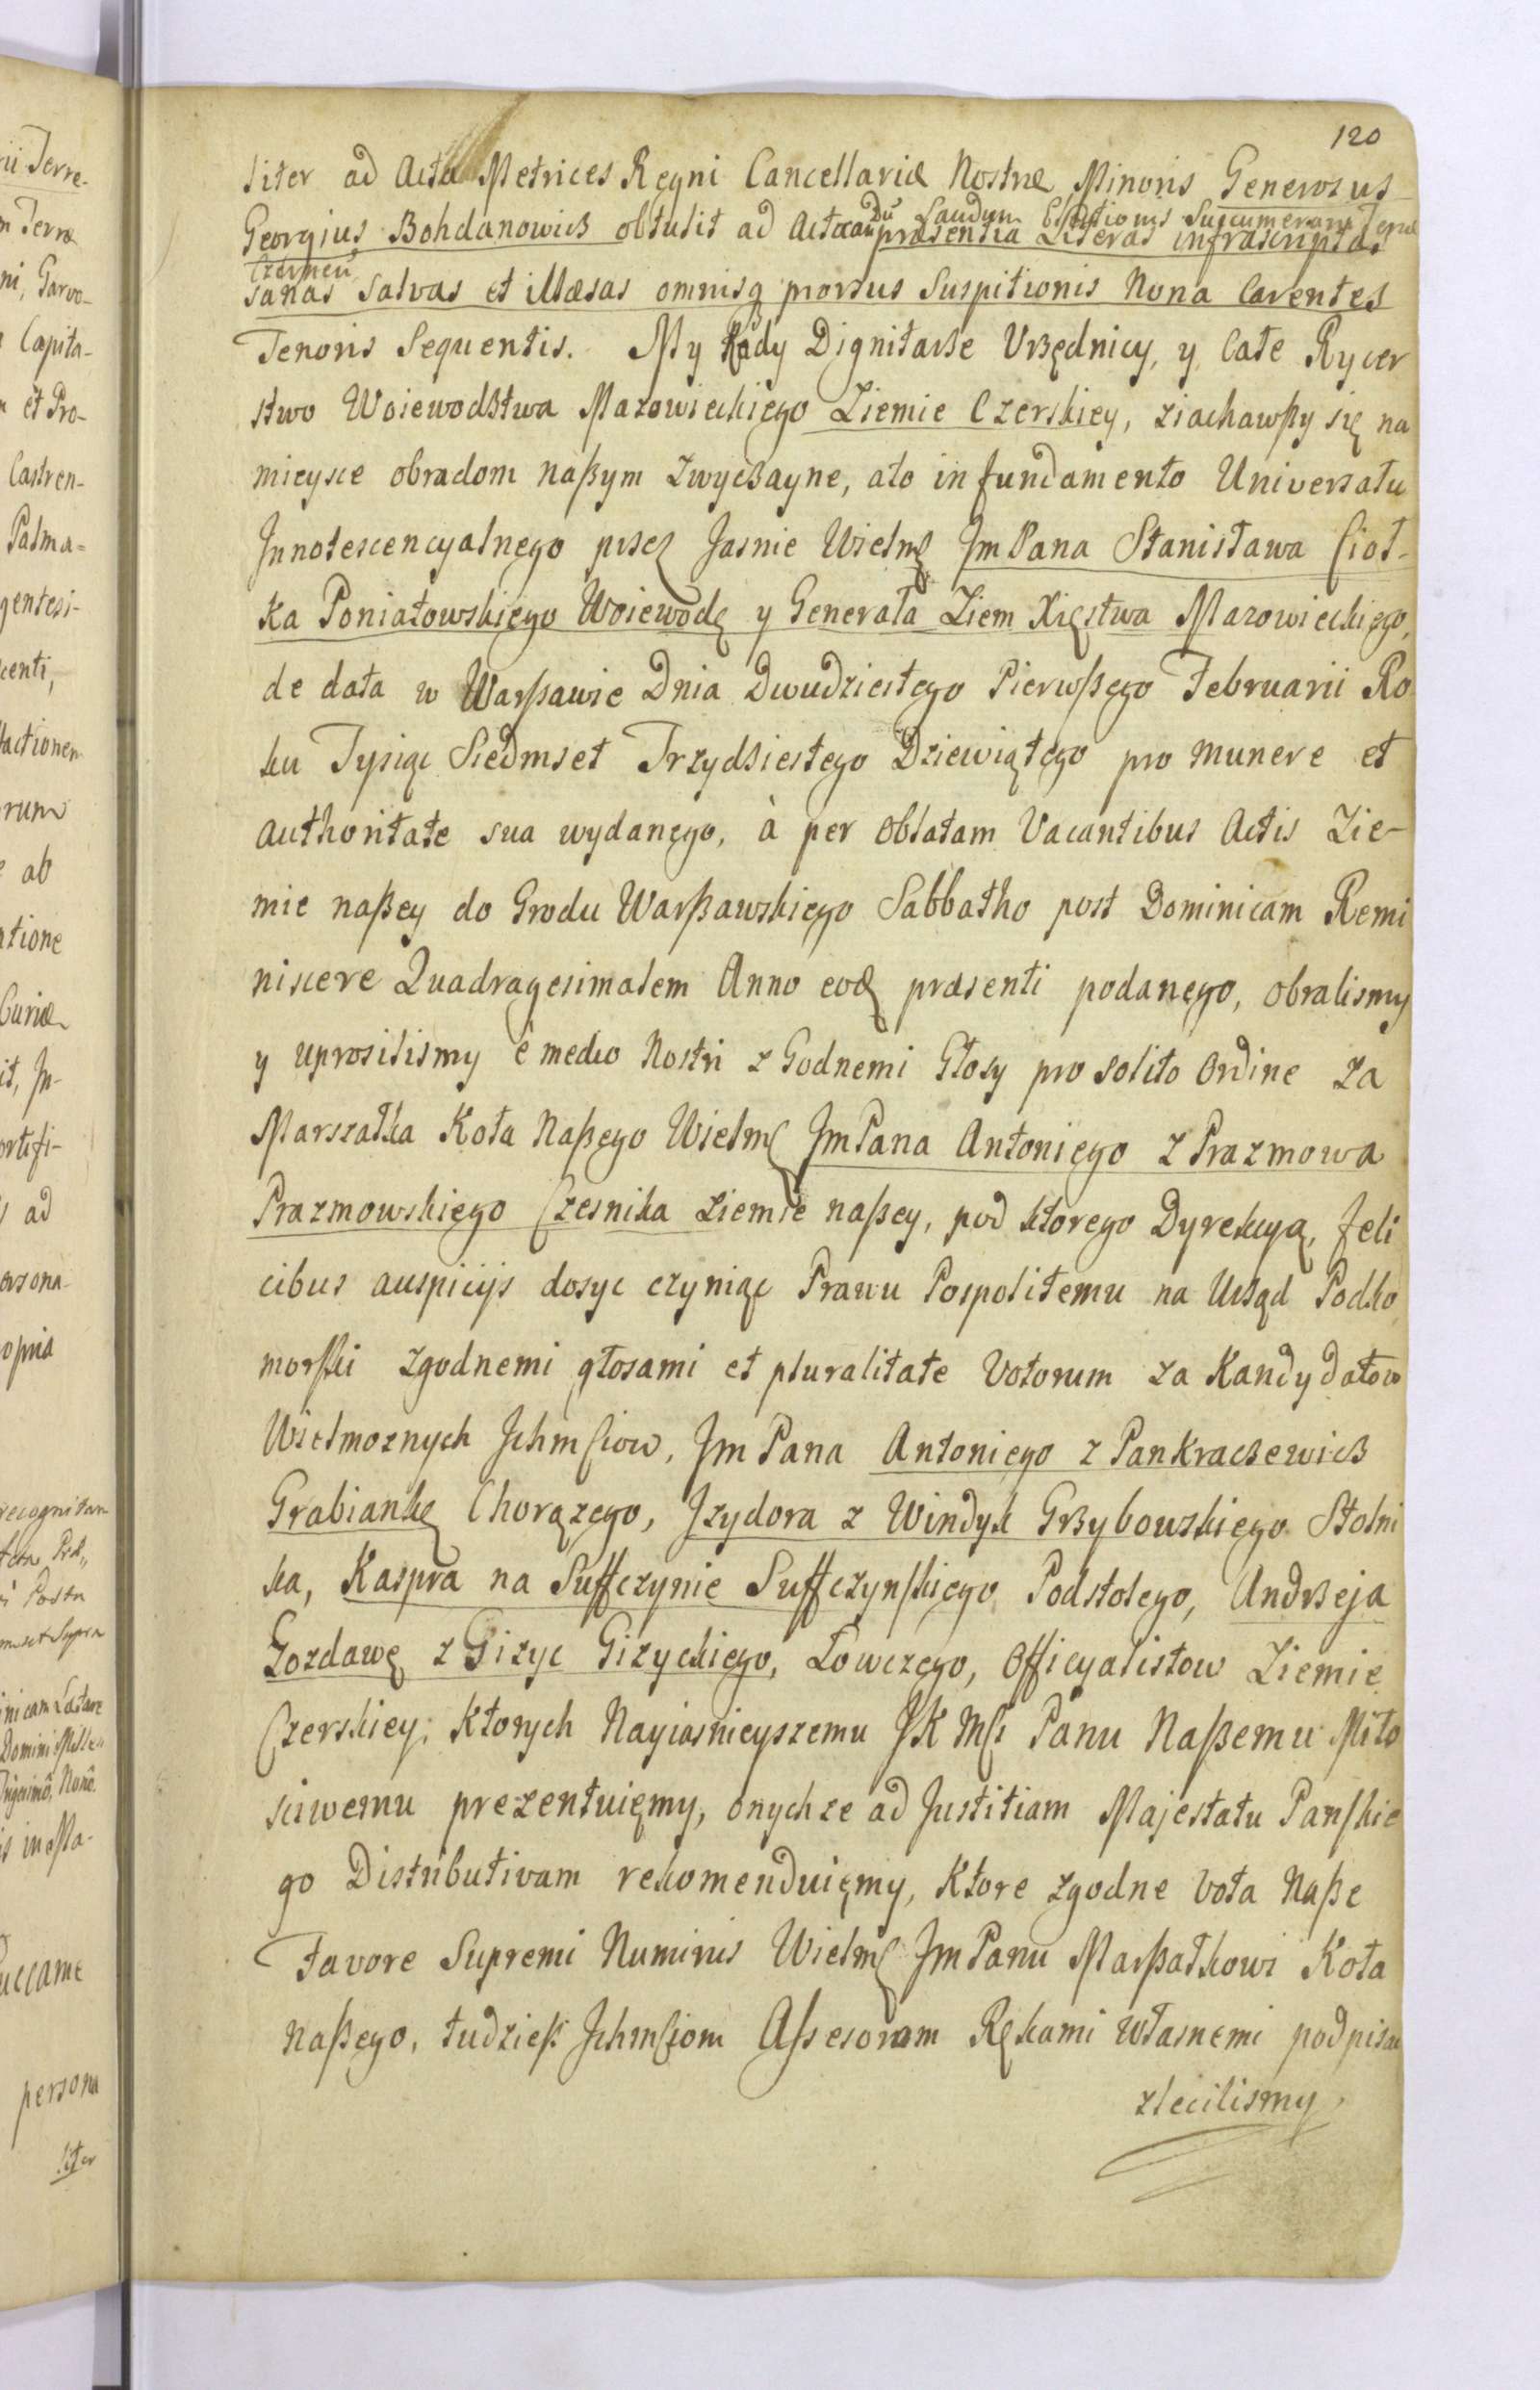 120
liter ad Acta Metrices Regni Cancellariæ Nostræ Minoris Generosus
Laudum Electionis Succamerary Terræ
Georgius Bohdanowicz obtulit ad Acta præsentia Literas infrascriptas
Czernen
sanas salvas et illæsas omnisq prorsus Suspitionis Nona Carentes
Tenoris Sequentis. My Rady Dignitarze Urzędnicy, y Całe Rycer
stwo Woiewodztwa Mazowieckiego Ziemie Czerskiey, ziachawszy się na
mieysce obradom naszym zwyczayne, ato in fundamento Universału
Innotescencyalnego przez Jasnie Wielmo Jm Pana Stanisława Cioł-
ka Poniatowskiego Woiewodę y Generała Ziem Xięstwa Mazowieckiego,
de data w Warszawie Dnia Dwudziestego Pierwszego Februarii Ro
ku Tysiąc Siedmset Trzydziestego Dziewiątego pro munere et
authoritate sua wydanego, à per oblatam Vacantibus Actis Zie-
mie naszey do Grodu Warszawskiego Sabbatho post Dominicam Remi
niscere Quadragesimalem Anno eoq præsenti podanego, obralismy
y uprosilismy é medio Nostri z Godnemi Głosy pro solito Ordine Za
Marszałka Koła Naszego Wielmo Jm Pana Antoniego z Prazmowa
Prazmowskiego Czesnika ziemie naszey, pod ktorego Dyrekcyą, feli
cibus auspicijs dosyc czyniąc Prawu Pospolitemu na Urząd Podko
morski zgodnemi głosami et pluralitate Votorum za Kandydatow
Wielmoznych Jchmsciow, Jm Pana Antoniego z Pankraczewicz
Grabiankę Chorązego, Jzydora z Windyk Grzybowskiego Stolni
ka, Kaspra na Suffczynie Suffczynskiego Podstolego, Andrzeja
Gozdawę z Gizyc Gizyckiego, Łowczego, Officyalistow Ziemie
Czerskiey; Ktorych Nayiasnieyszemu JK Msci Panu Naszemu Miło
sciwemu prezentuięmy, onychze ad Justitiam Majestatu Panskie
go Distributivam rekomenduięmy, Ktore zgodne Vota Nasze
Favore Supremi Numinis Wielmo Jm Panu Marszałkowi Koła
naszego, tudziesz Jchmsciom Assesorom Rękami własnemi podpisac
zlecilismy